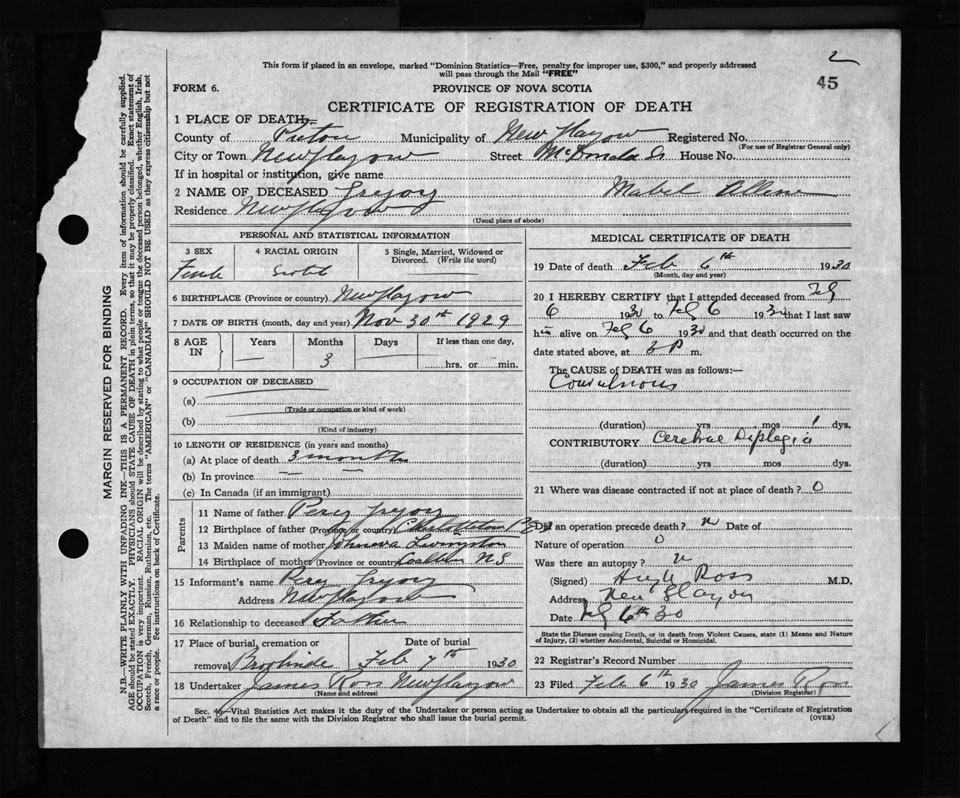 2
45
This form if placed in an envelope, marked "Dominion Statistics—Free, penalty for improper use, $300," and properly addressed
will pass through the Mail "FREE"
FORM 6. PROVINCE OF NOVA SCOTIA
CERTIFICATE OF REGISTRATION OF DEATH
1 PLACE OF DEATH
County of Pictou Municipality of New Glasgow Registered No.
(For use of Registrar General only)
City or Town New Glasgow Street McDonald St House No.
If in hospital or institution, give name
2 NAME OF DECEASED Gregory Mabel
Residence New Glasgow
(Usual place of abode)
PERSONAL AND STATISTICAL INFORMATION
3 SEX 4 RACIAL ORIGIN 5 Single, Married, Widowed or
Divorced. (Write the word)
Female Scotch
6 BIRTHPLACE (Province or country) New Glasgow
7 DATE OF BIRTH (month, day and year) Nov 30th 1929
8 AGE IN Years Months Days If less than one day,
— 3 — hrs. or min.
9 OCCUPATION OF DECEASED
(a)
(Trade or occupation or kind of work)
(b)
(Kind of industry)
10 LENGTH OF RESIDENCE (in years and months)
(a) At place of death 3 months
(b) In province — —
(c) In Canada (if an immigrant)
Parents
11 Name of father Percy Gregory
12 Birthplace of father (Province or country) Charlottetown P E I
13 Maiden name of mother Livingston
14 Birthplace of mother (Province or country) N S
15 Informant's name Percy Gregory
Address New Glasgow
16 Relationship to deceased Father
17 Place of burial, cremation or
removal Brookside
Date of burial
Feb 7th 1930
18 Undertaker James Ross New Glasgow
(Name and address)
MEDICAL CERTIFICATE OF DEATH
19 Date of death Feb 6th 1930
(Month, day and year)
20 I HEREBY CERTIFY that I attended deceased from Feb
6 1930 to Feb 6 1930 that I last saw
h alive on Feb 6 1930 and that death occurred on the
date stated above, at 3 P m.
The CAUSE of DEATH was as follows:—
Convulsions
(duration) yrs mos 1 dys.
CONTRIBUTORY Cerebral Diplegia
(duration) yrs mos dys.
21 Where was disease contracted if not at place of death? 0
Did an operation precede death? n Date of
Nature of operation 0
Was there an autopsy? n
(Signed) Hugh Ross M.D.
Address New Glasgow
Date Feb 6th 30
State the Disease causing Death, or in death from Violent Causes, state (1) Means and Nature
of Injury, (2) whether Accidental, Suicidal or Homicidal.
22 Registrar's Record Number
23 Filed Feb 6th 1930 James Ross
(Division Registrar)
Sec. 4—Vital Statistics Act makes it the duty of the Undertaker or person acting as Undertaker to obtain all the particulars required in the "Certificate of Registration
of Death" and to file the same with the Division Registrar who shall issue the burial permit. (OVER)
MARGIN RESERVED FOR BINDING
N.B.—WRITE PLAINLY WITH UNFADING INK—THIS IS A PERMANENT RECORD. Every item of information should be carefully supplied.
AGE should be stated EXACTLY. PHYSICIANS should STATE CAUSE OF DEATH in plain terms, so that it may be properly classified. Exact statement of
OCCUPATION is very important. RACIAL ORIGIN will be described by stating to what people or tongue the deceased person belonged, whether English, Irish,
Scotch, French, German, Russian, Ruthenian, etc. The terms "AMERICAN" or "CANADIAN" SHOULD NOT BE USED as they express citizenship but not
a race or people. See instructions on back of Certificate.